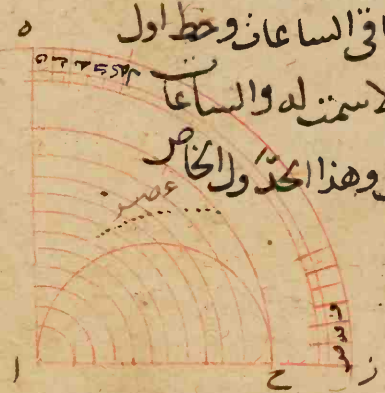 قى الساعات وخط اول
لا سمت له والساعات
وهذا الجدول الخاص
ه
عصر
ا
ح
ز